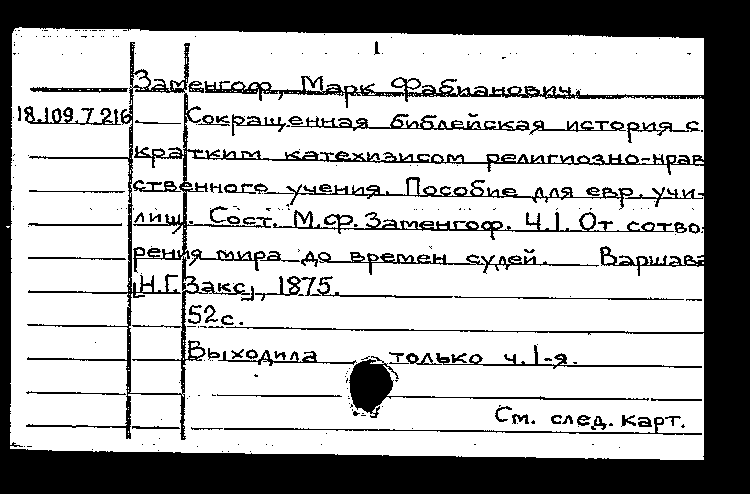 1
Заменгоф, Марк Фабианович.
18.109.7.216. Сокращенная библейская история с
кратким катехизисом религиозно-нрав
ственного учения. Пособие для евр. учи-
лищ. Сост. М.Ф. Заменгоф. Ч.1. От сотво-
рения мира до времен судей. Варшава
[Н.Г. Закс], 1875.
52с.
Выходила только ч.1-я.
См. след. карт.